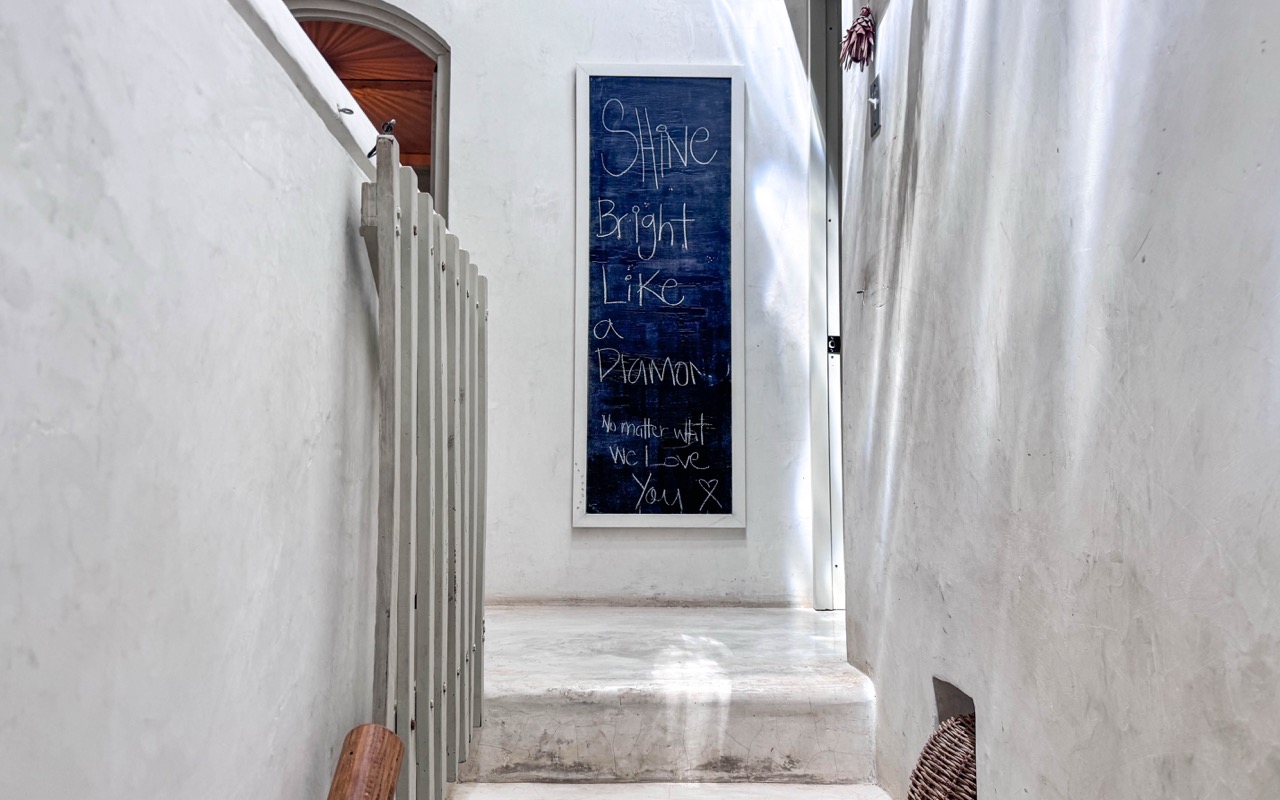 SHiNe
Bright
Like
a
DIAMON
No matter what
We Love
You